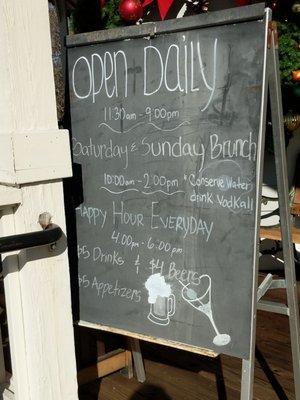 OPEN Daily
11:30am - 9:00pm
Saturday & Sunday Brunch
10:00am - 2:00pm *Conserve Water
drink Vodka!!
Happy Hour Everyday
4:00pm - 6:00pm
$5 Drinks & $4 Beers
$5 Appetizers